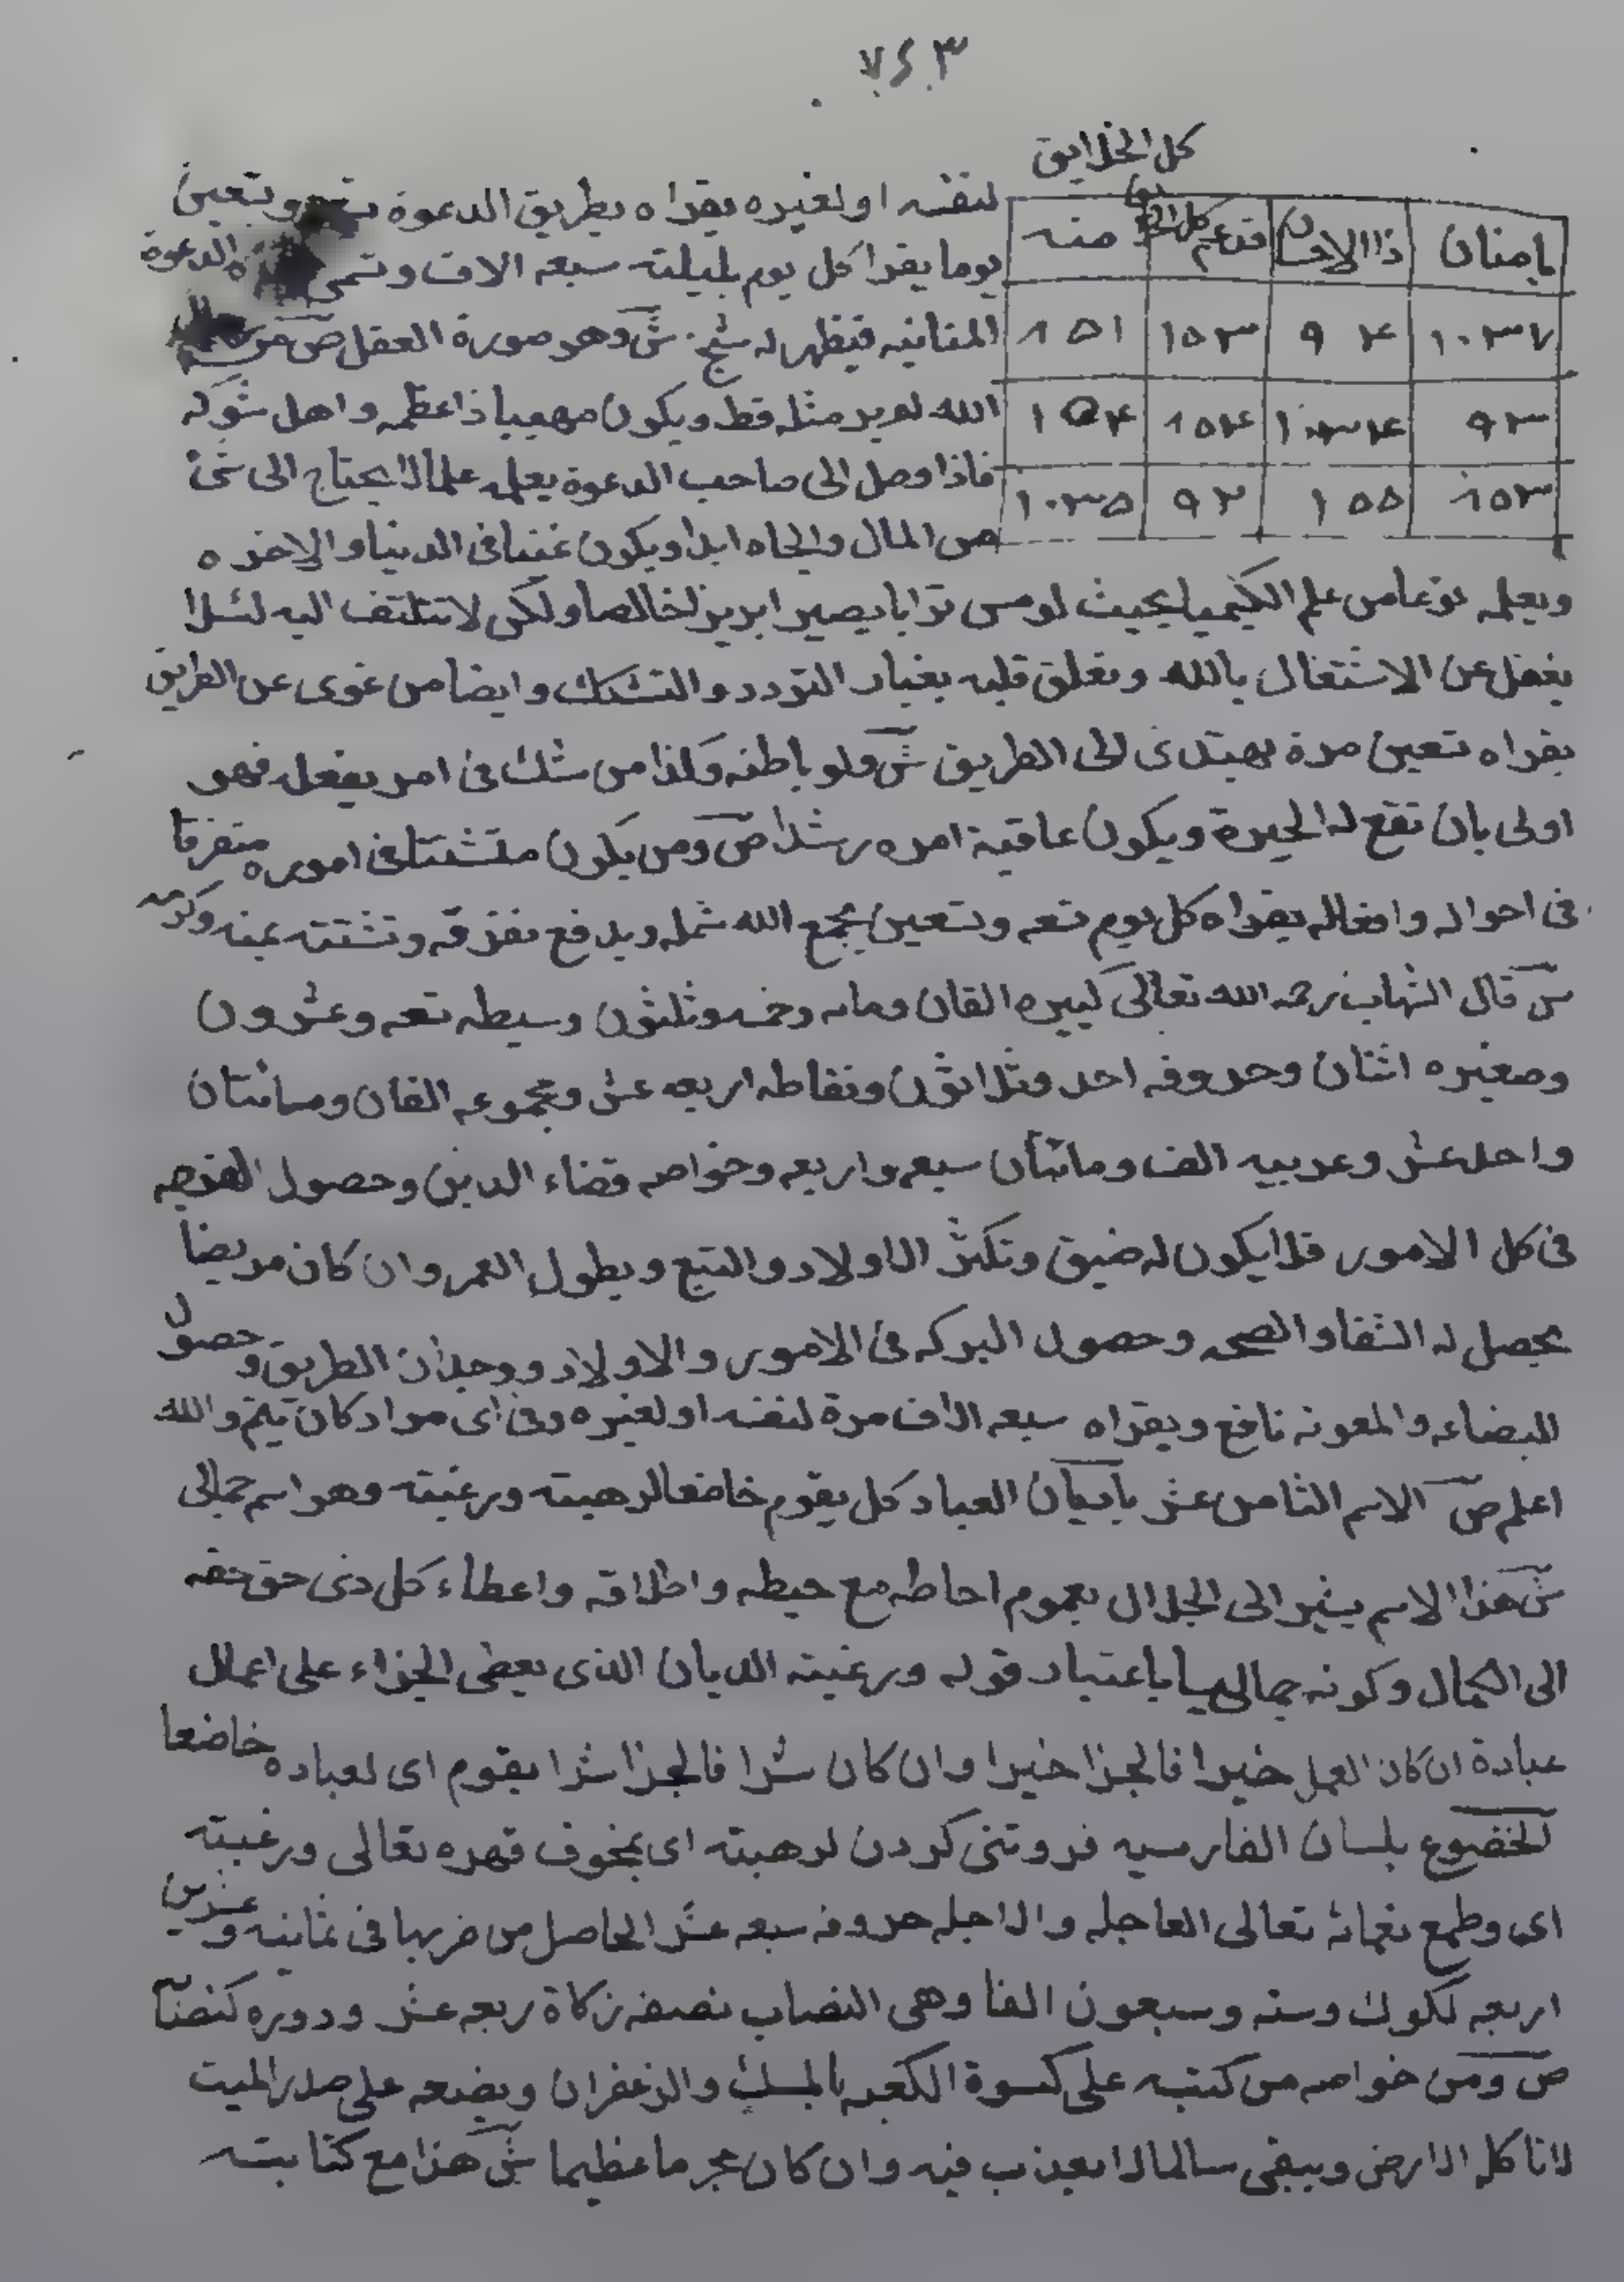 ٧٤٣
كل الخلايق
يا منان ذا الاحسان قد عم كل الخلايق منه
١٠٣٧ ٩٤ ١٥٣ ١٥١
٩٣ ١٠٣٤ ١٥٤ ١٥٤
١٥٣ ١٥٥ ٩٢ ١٠٣٥
لنفسه او لغيره يقراه بطريق الدعوة وتعين
يوما يقرا كل يوم بليلته سبعه الاف الدعوة
فيظهر له ش وهو صورة العقل ص من
الله لم ير مثله قط ويكون مهيبا ذا عظمه واهل شوكه
فاذا وصل الى صاحب الدعوة يعلمه علما لا يحتاج الى شئ
من المال والجاه ابدا ويكون غنيا فى الدنيا والاخره
ويعلمه نوعا من علم الكيميا بحيث لو مس ترابا يصير ابريزا خالصا ولكن لا تتلتف اليه لئلا
يغفل عن الاشتغال بالله وتعلق قلبه بغبار التردد والتشكك وايضا من غوى عن الطريق
يقراه تعين مرة يهتدى الى الطريق ش ولو باطنه وكذا من شك فى امر يفعله فهو
اولى بان تقع له الحيرة ويكون عاقبة امره رشدا ص ومن يكون متشتتا فى اموره متفرقا
فى احواله وافعاله يقراه كل يوم تعه وتعين يجمع الله شمله ويدفع تفرقه وتشتته بمنه وكرمه
ش قال الشهاب رحمه الله تعالى كبيره الفان ومايه وخمسه وثلثون وسيطه تعه وعشرون
وصغيره اثنان وحروفه احد وثلاثون ونقاطه اربعه عش ومجموعه الفان ومائتان
واحد عش وعربيه الف ومائتان سبعه واربعه وخواصه قضاء الدين وحصول
فى كل الامور فلا يكون له ضيق وتكثر الاولاد والتبع ويطول العمر وان كان مريضا
يحصل له الشفا والصحه وحصول البركه فى الامور والاولاد ووجدان الطريق وحصول
للبضاعه والمعونه نافع ويقراه سبعه الاف مرة لنفسه او لغيره وفى اى مراد كان يتم والله
اعلم ص الاسم الثامن عش يا ديان العباد كل يقوم خاضعا لرهبته ورغبته وهو اسم جمالى
ش هذا الاسم يشير الى الجلال بعموم احاطه مع حيطه واطلاقه واعطاء كل ذى حق حقه
الى الكمال وكونه جماليا باعتبار قوله ورغبته الديان الذى يعطى الجزاء على اعمال
عبادة ان كان العمل خيرا فالجزا خيرا وان كان شرا فالجزا شرا يقوم اى لعباده خاضعا
الخضوع بلسان الفارسيه فروتنى كردن لرهبته اى بخوف قهره تعالى ورغبته
اى وطمع نعمائه تعالى العاجله والاجله حروفه سبعه عش الحاصل من ضربها فى ثمانيه وعشرين
اربعه لكوك وسته وسبعون الفا وهى النصاب نصفه زكاة ربعه عش ودوره كنصاب
ص ومن خواصه من كتبه على كسوة الكعبه بالمسك والزعفران ويضعه على صدر الميت
لا تاكله الارض ويبقى سالما لا يعذب فيه وان كان مجرما عظيما ش هذا مع كتابته